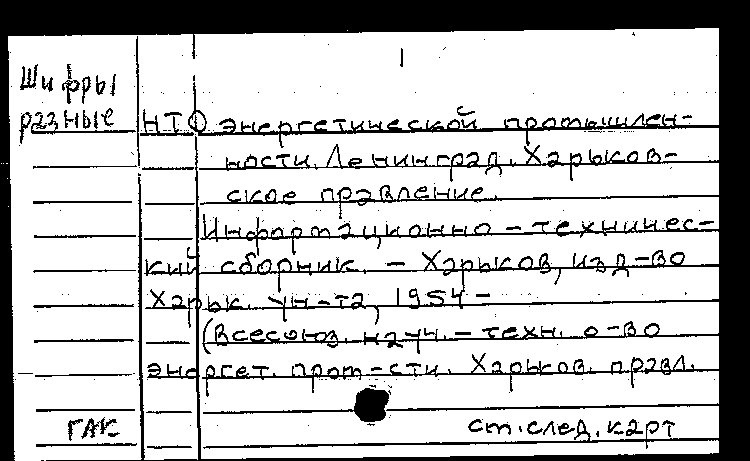 1
Шифры
разные
НТО энергетической промышлен-
ности. Ленинград. Харьков-
ское правление.
Информационно-техничес-
кий сборник. - Харьков, изд-во
Харьк. ун-та, 1954 -
(Всесоюз. науч.-техн. о-во
энергет. пром-сти. Харьков. правл.
ГАК
ст. след. карт